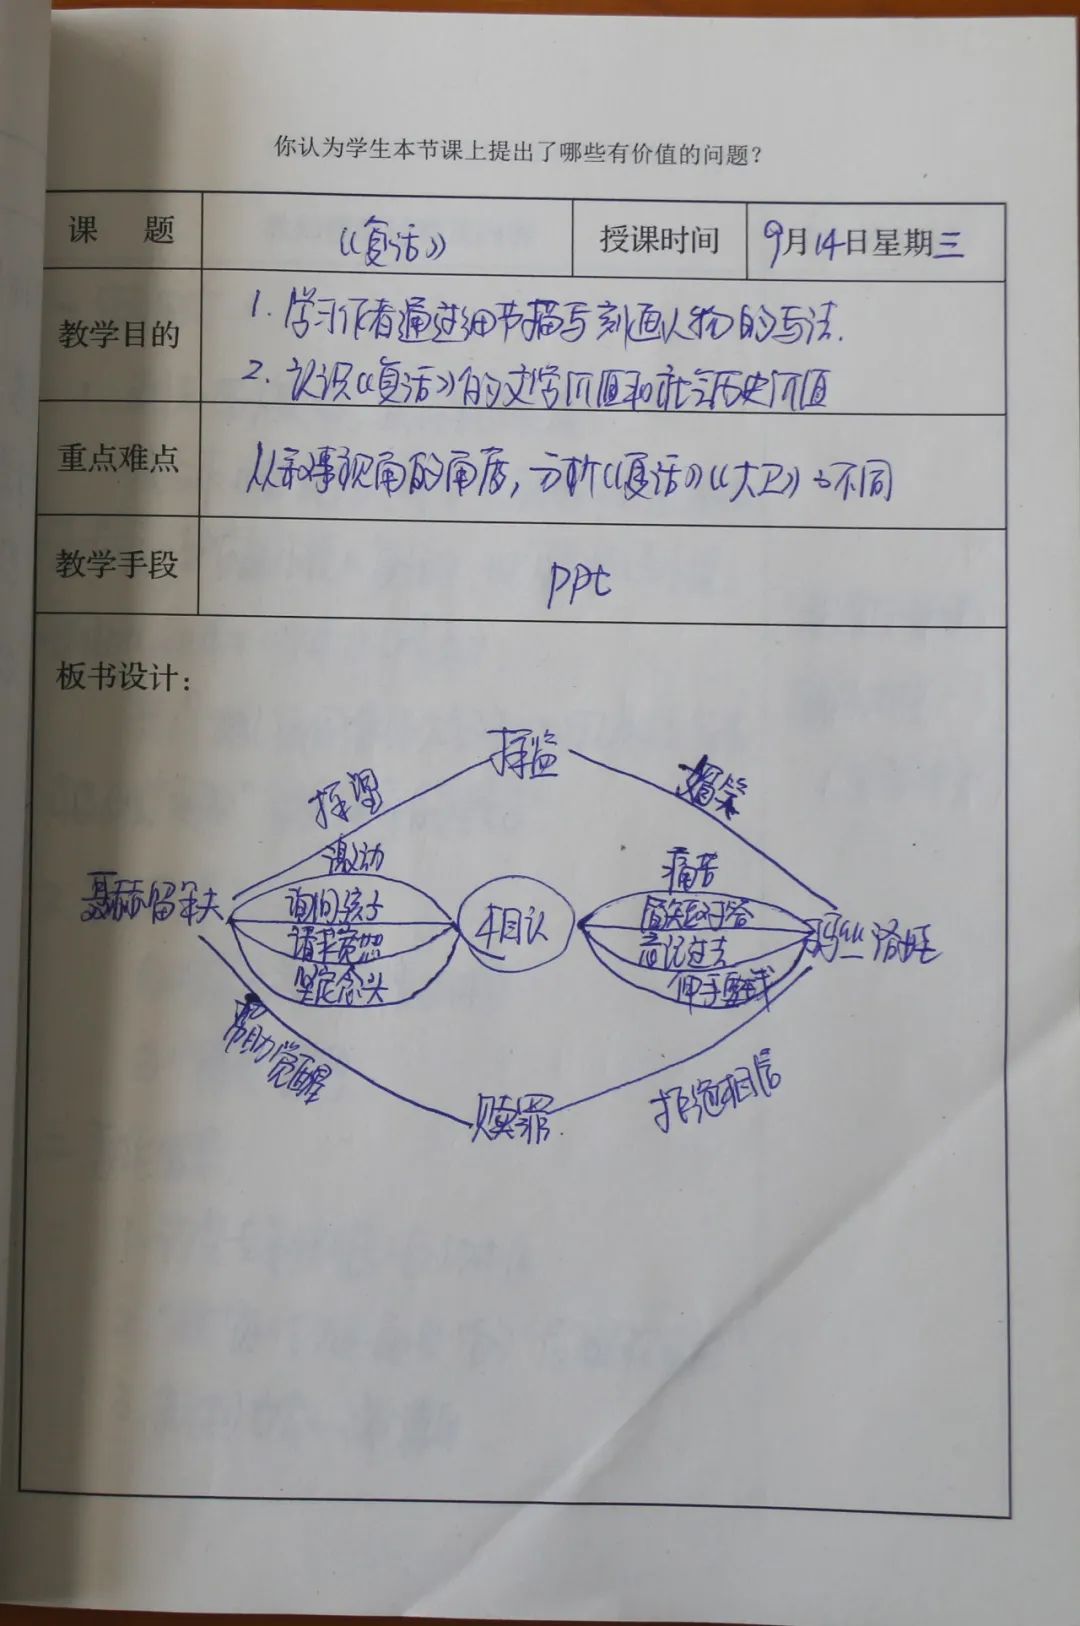 你认为学生本节课上提出了哪些有价值的问题?
课 题
《复活》
授课时间
9月14日星期三
教学目的
1. 学习作者通过细节描写刻画人物的写法.
2. 认识《复活》的文学价值和社会历史价值
重点难点
从叙事视角的角度,分析《复活》《大卫》的不同
教学手段
ppt
板书设计:
探监
探望
媚笑
激动
痛苦
聂赫留朵夫
询问孩子
相认
简短对答
玛丝洛娃
请求宽恕
忘记过去
坚定念头
伸手要钱
帮助觉醒
赎罪
拒绝相信